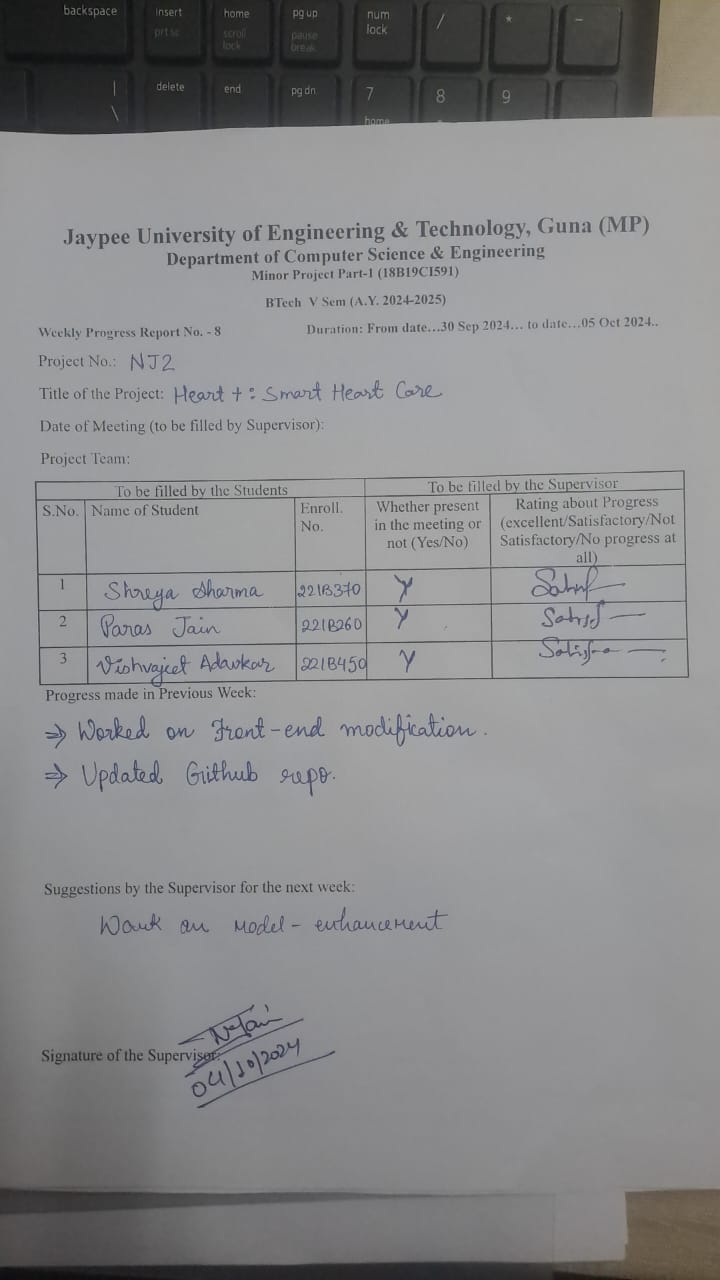 backspace insert prt sc home scroll lock pg up pause break num lock / * -
| \ delete end pg dn 7 home 8 9
Jaypee University of Engineering & Technology, Guna (MP)
Department of Computer Science & Engineering
Minor Project Part-1 (18B19CI591)
BTech V Sem (A.Y. 2024-2025)
Weekly Progress Report No. - 8 Duration: From date...30 Sep 2024... to date...05 Oct 2024..
Project No.: NJ2
Title of the Project: Heart + : Smart Heart Care
Date of Meeting (to be filled by Supervisor):
Project Team:
To be filled by the Students To be filled by the Supervisor
S.No. Name of Student Enroll. No. Whether present in the meeting or not (Yes/No) Rating about Progress (excellent/Satisfactory/Not Satisfactory/No progress at all)
1 Shreya Sharma 221B370 Y
2 Paras Jain 221B260 Y
3 Vishvajeet Adavkar 221B450 Y
Progress made in Previous Week:
⇒ Worked on Front-end modification.
⇒ Updated Github repo.
Suggestions by the Supervisor for the next week:
Work on model-enhancement
Signature of the Supervisor:
04/10/2024